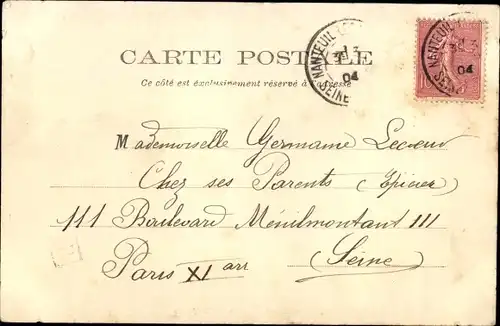 CARTE POSTALE
Ce côté est exclusivement réservé à l'adresse
NANTEUIL
04
SEINE
NANTEUIL
04
SEINE
10
Mademoiselle Germaine Lecoeur
Chez ses Parents (Epicier)
111 Boulevard Ménilmontant 111
Paris XI arr (Seine)